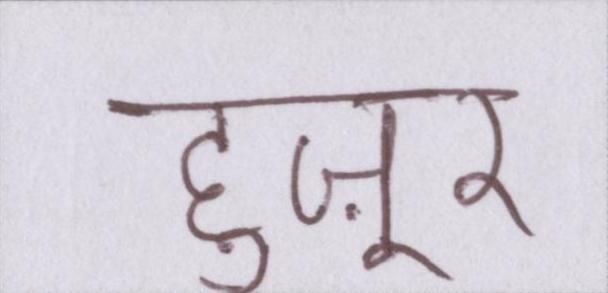 हुज़ूर